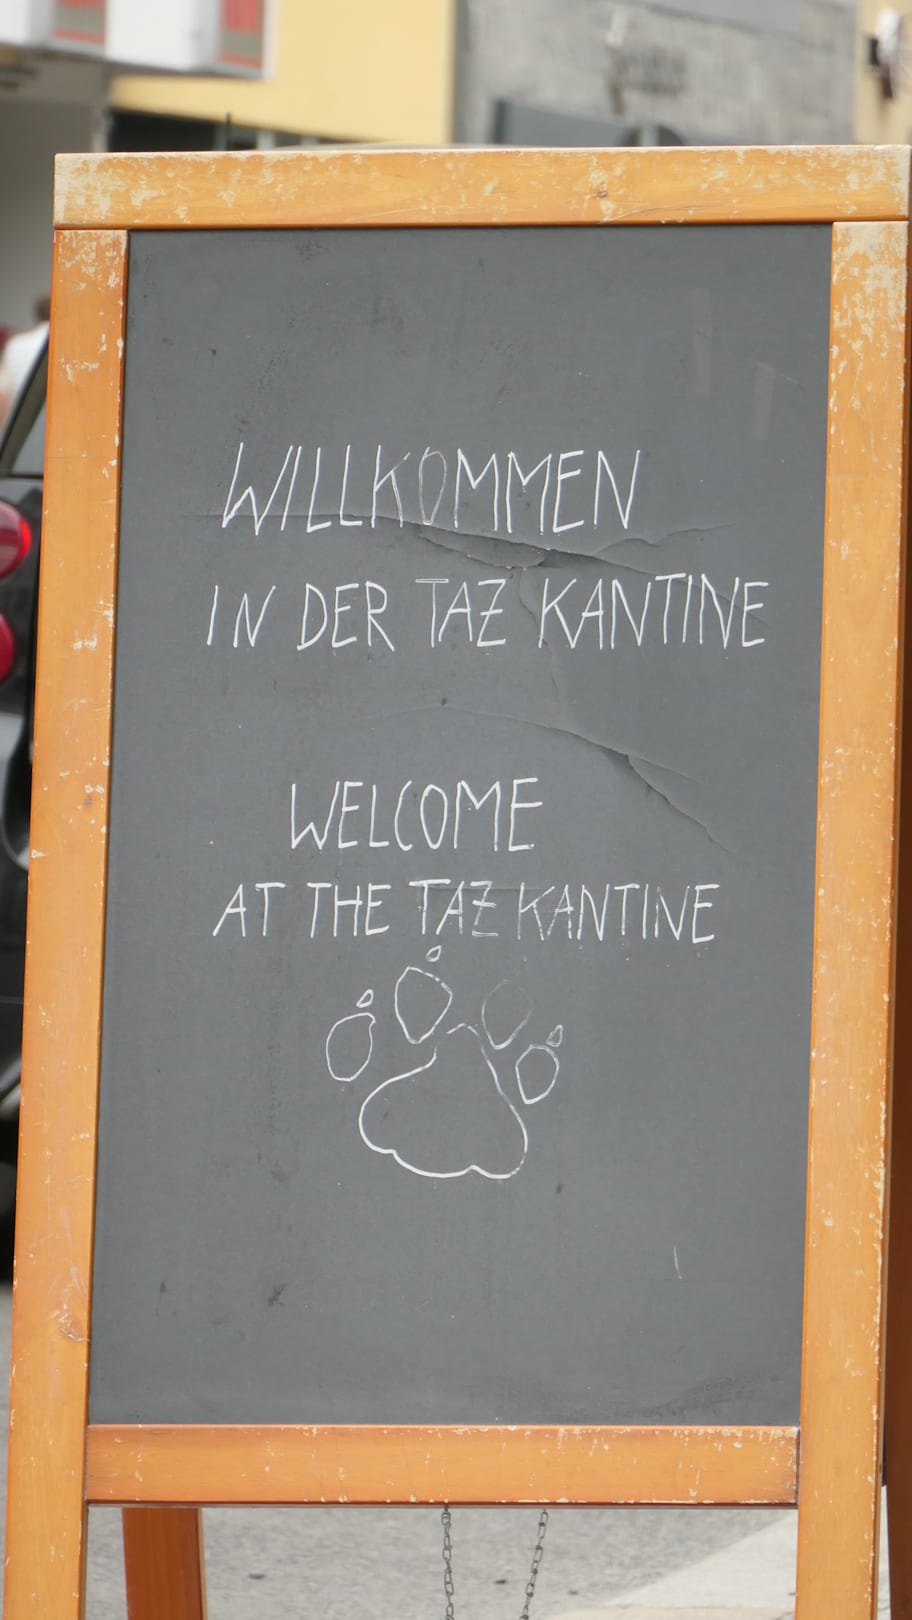 WILLKOMMEN
IN DER TAZ KANTINE
WELCOME
AT THE TAZ KANTINE